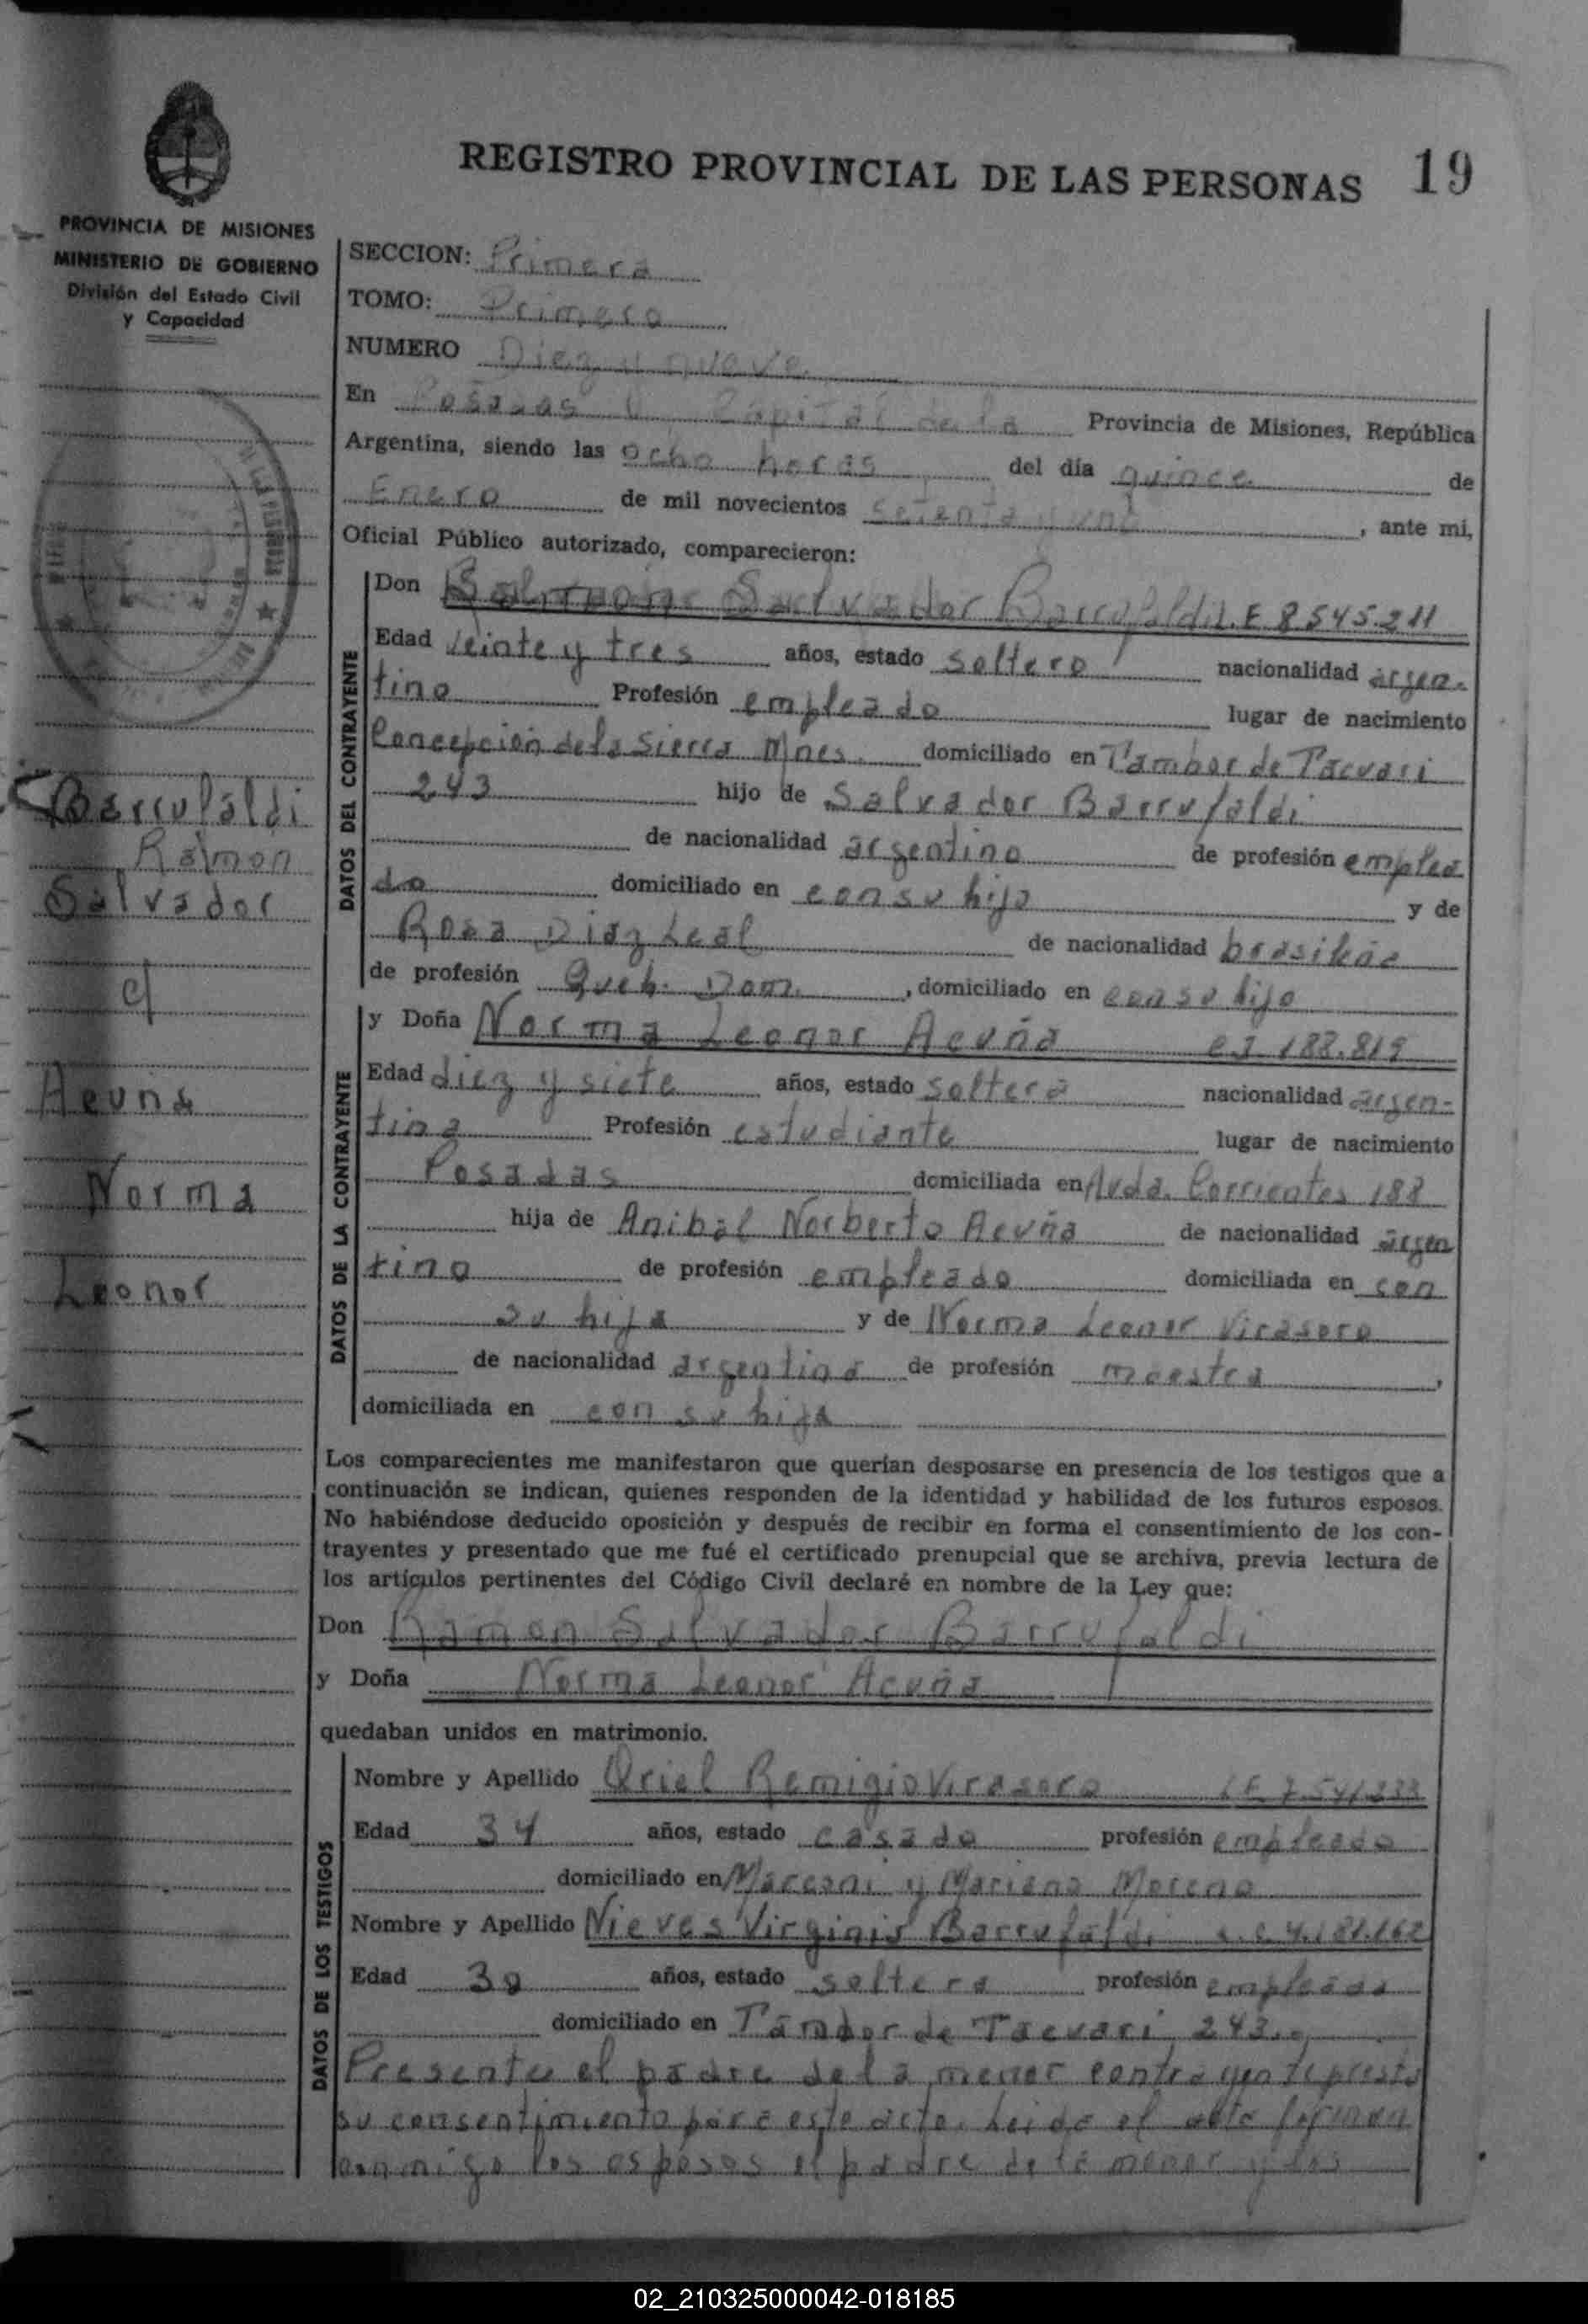 REGISTRO PROVINCIAL DE LAS PERSONAS 19
PROVINCIA DE MISIONES
MINISTERIO DE GOBIERNO
División del Estado Civil
y Capacidad
SECCION: Primera
TOMO: Primero
NUMERO Diez y nueve
En Posadas Capital de la Provincia de Misiones, República
Argentina, siendo las ocho horas del día quince de
Enero de mil novecientos setenta y uno, ante mi,
Oficial Público autorizado, comparecieron:
DATOS DEL CONTRAYENTE
Don Salvador Barrufaldi L.E 8545.211
Edad veinte y tres años, estado soltero nacionalidad argen-
tino Profesión empleado lugar de nacimiento
Concepción de la Sierra Mnes. domiciliado en Tambor de Tacuari
243 hijo de Salvador Barrufaldi
de nacionalidad argentino de profesión emplea
do domiciliado en con su hijo y de
Rosa Diaz Leal de nacionalidad
de profesión Queh. Dom., domiciliado en con su hijo
DATOS DE LA CONTRAYENTE
y Doña Norma Leonor Acuña 188.819
Edad diez y siete años, estado soltera nacionalidad argen-
tina Profesión estudiante lugar de nacimiento
Posadas domiciliada en Avda. Corrientes 188
hija de Anibal Norberto Acuña de nacionalidad argen
tino de profesión empleado domiciliada en con
su hija y de Norma Leonor Virasoro
de nacionalidad argentina de profesión maestra,
domiciliada en con su hija
Barrufaldi
Ramon
Salvador
c/
Acuña
Norma
Leonor
Los comparecientes me manifestaron que querían desposarse en presencia de los testigos que a
continuación se indican, quienes responden de la identidad y habilidad de los futuros esposos.
No habiéndose deducido oposición y después de recibir en forma el consentimiento de los con-
trayentes y presentado que me fué el certificado prenupcial que se archiva, previa lectura de
los artículos pertinentes del Código Civil declaré en nombre de la Ley que:
Don Ramon Salvador Barrufaldi
y Doña Norma Leonor Acuña
quedaban unidos en matrimonio.
DATOS DE LOS TESTIGOS
Nombre y Apellido Oriel Remigio Virasoro
Edad 34 años, estado casado profesión empleado
domiciliado en Marconi y Mariano Moreno
Nombre y Apellido Nieves Virginia Barrufaldi
Edad 30 años, estado soltera profesión empleada
domiciliado en Tambor de Tacuari 243.
Presente el padre de la menor contrayente presta
su consentimiento para este acto. Leida el acta firman
conmigo los esposos el padre de la menor y los
02_210325000042-018185